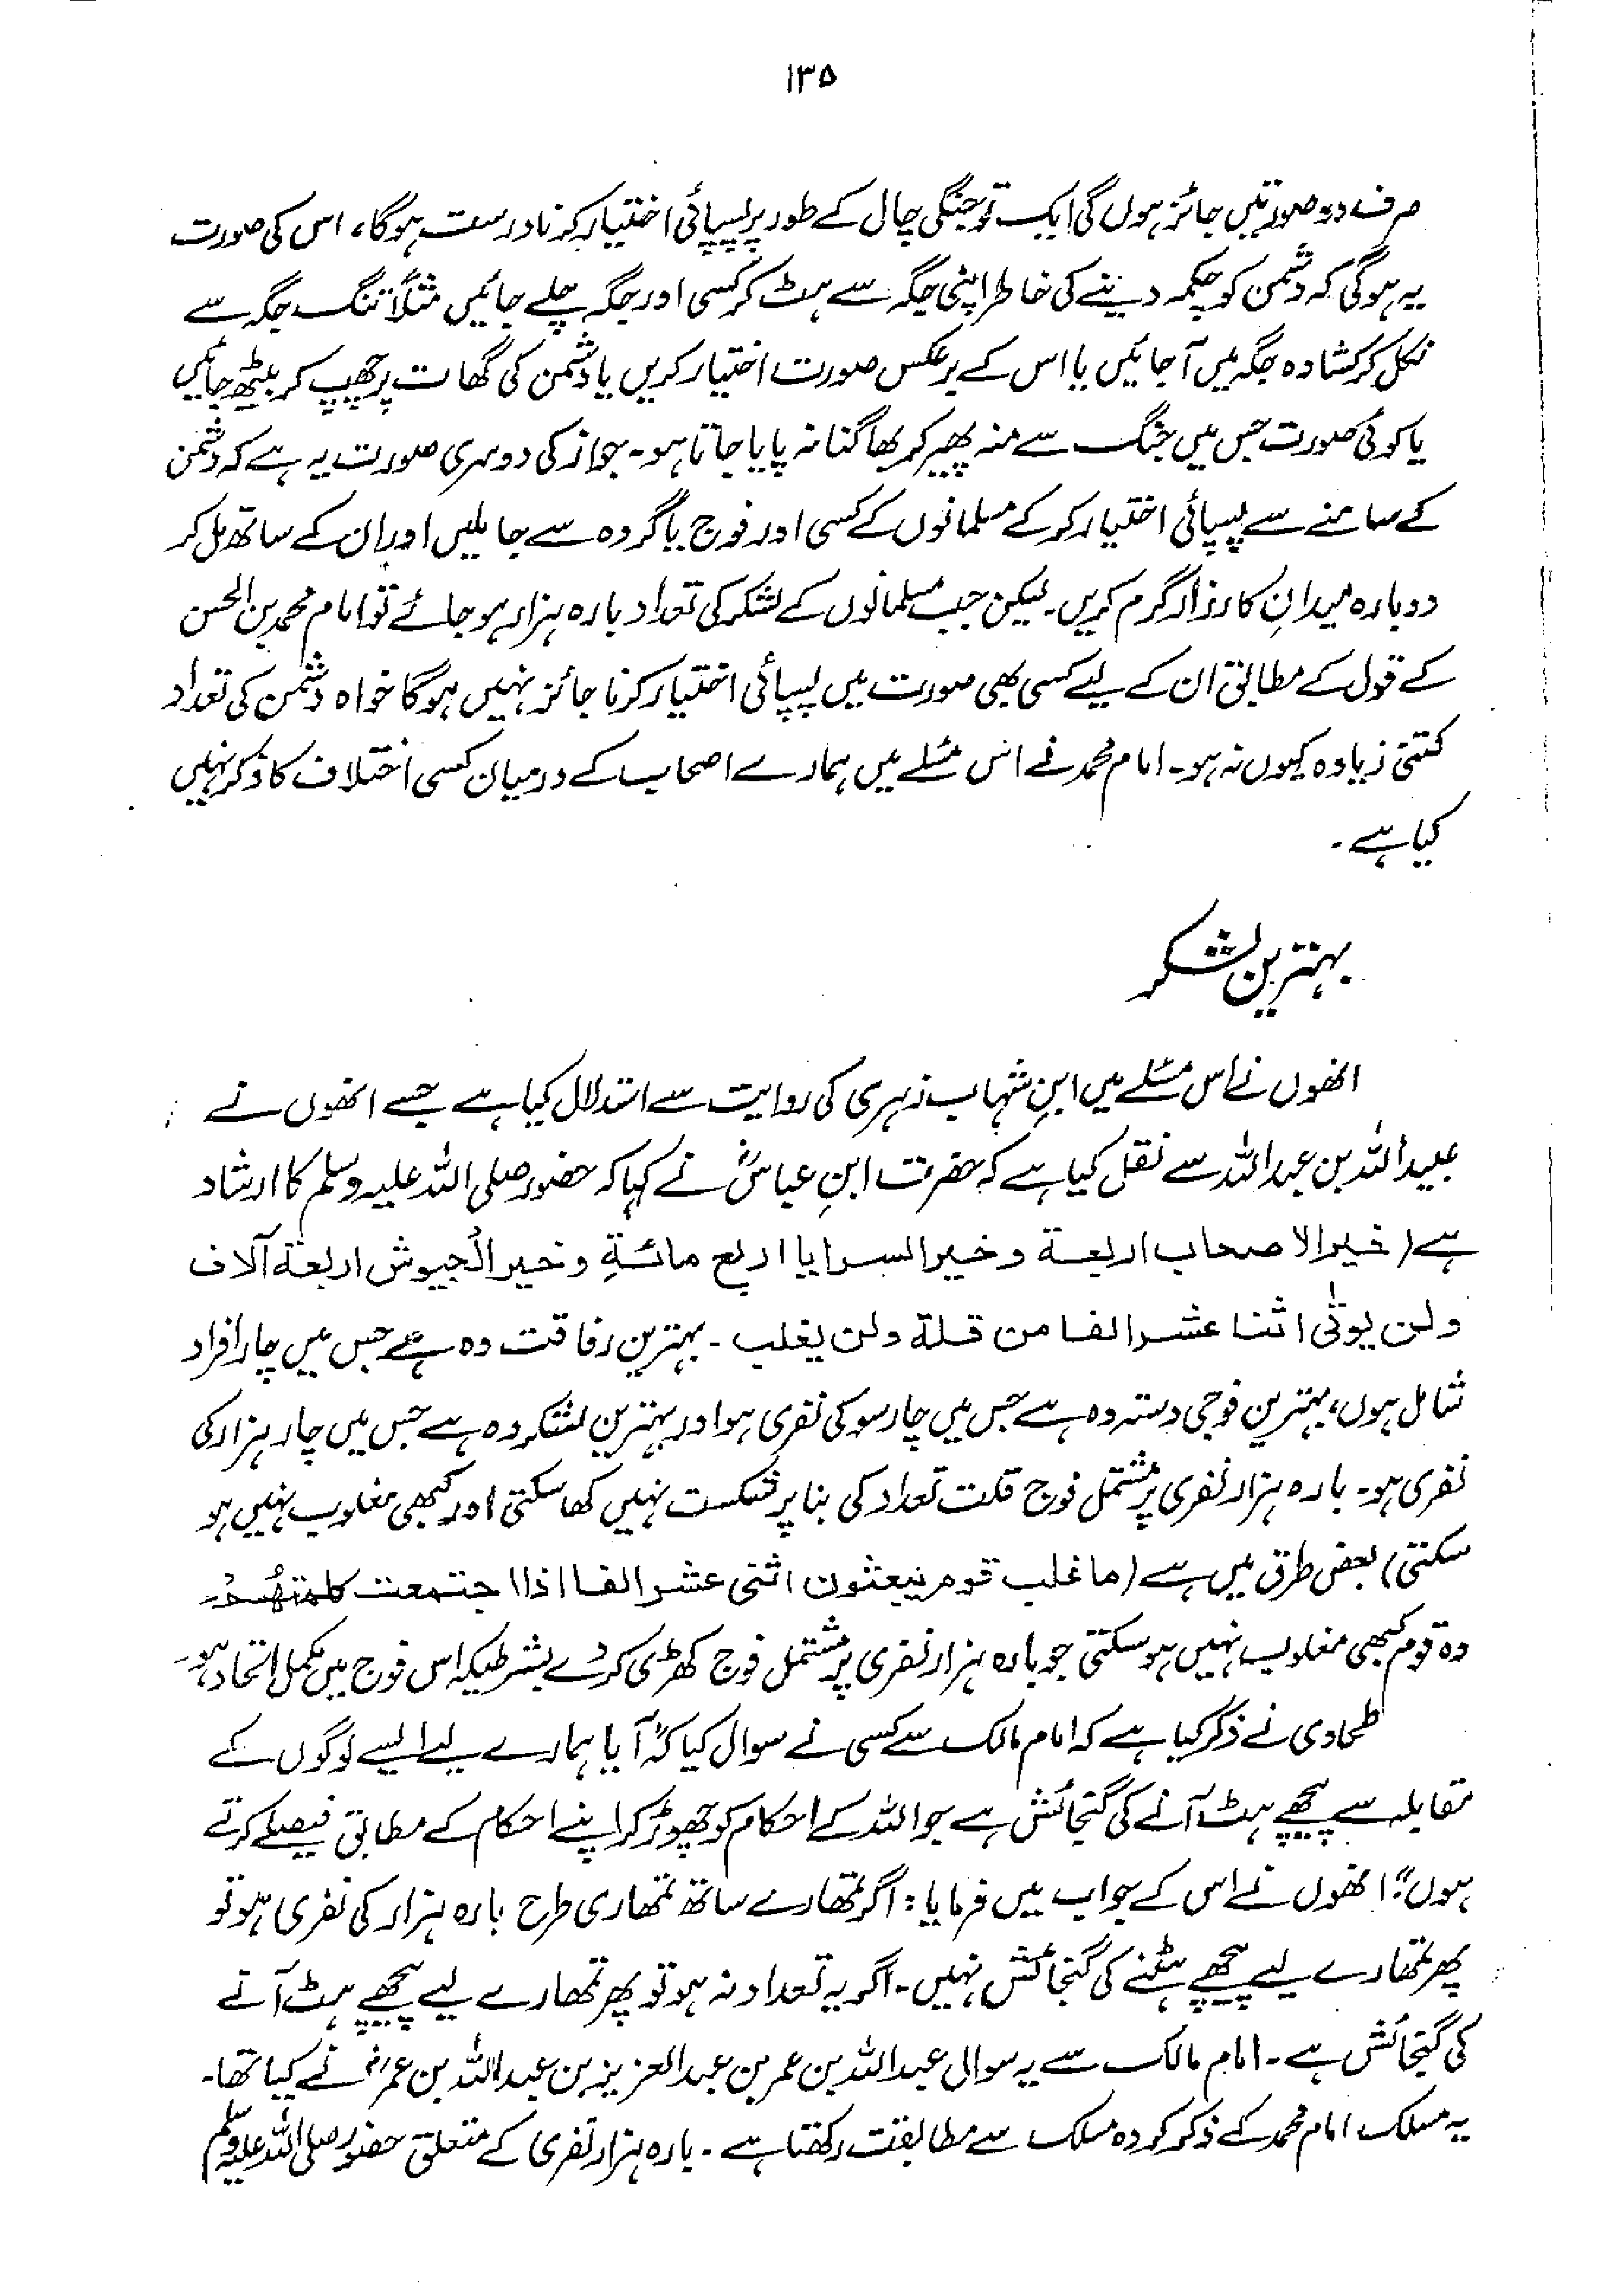 ۱۳۵
صرف دو صورتیں جائز ہوں گی ایک تو جنگی چال کے طور پر پسپائی اختیار کرنا درست ہوگا، اس کی صورت
یہ ہوگی کہ دشمن کو چکمہ دینے کی خاطر اپنی جگہ سے ہٹ کر کسی اور جگہ چلے جائیں مثلاً تنگ جگہ سے
نکل کر کشادہ جگہ میں آجائیں یا اس کے برعکس صورت اختیار کریں یا دشمن کی گھات پر چھپ کر بیٹھ جائیں
یا کوئی صورت جس میں جنگ سے منہ پھیر کر بھاگنا نہ پایا جاتا ہو۔ جواز کی دوسری صورت یہ ہے کہ دشمن
کے سامنے سے پسپائی اختیار کر کے مسلمانوں کے کسی اور فوج یا گروہ سے جا ملیں اور ان کے ساتھ مل کر
دوبارہ میدانِ کارزار گرم کریں۔ لیکن جب مسلمانوں کے لشکر کی تعداد بارہ ہزار ہو جائے تو امام محمد بن الحسن
کے قول کے مطابق ان کے لیے کسی بھی صورت میں پسپائی اختیار کرنا جائز نہیں ہوگا خواہ دشمن کی تعداد
کتنی زیادہ کیوں نہ ہو۔ امام محمد نے اس مسئلے میں ہمارے اصحاب کے درمیان کسی اختلاف کا ذکر نہیں
کیا ہے۔
بہترین لشکر
انھوں نے اس مسئلے میں ابنِ شہاب زہری کی روایت سے استدلال کیا ہے جسے انھوں نے
عبیداللہ بن عبداللہ سے نقل کیا ہے کہ حضرت ابنِ عباسؓ نے کہا کہ حضور صلی اللہ علیہ وسلم کا ارشاد
ہے (خیر الاصحاب اربعة وخیر السرایا اربع مائةِ وخیر الجیوش اربعة آلاف
ولن یوتٰی اثنا عشر الفا من قلة ولن یغلب۔ بہترین رفاقت وہ ہے جس میں چار افراد
شامل ہوں، بہترین فوجی دستہ وہ ہے جس میں چار سو کی نفری ہو اور بہترین لشکر وہ ہے جس میں چار ہزار کی
نفری ہو۔ بارہ ہزار نفری پر مشتمل فوج قلت تعداد کی بنا پر شکست نہیں کھا سکتی اور کبھی مغلوب نہیں ہو
سکتی) بعض طرق میں ہے (ما غلب قوم یبعثون اثنی عشر الفا اذا اجتمعت کلمتھم۔
وہ قوم کبھی مغلوب نہیں ہو سکتی جو بارہ ہزار نفری پر مشتمل فوج کھڑی کر دے بشرطیکہ اس فوج میں مکمل اتحاد ہو۔
طحاوی نے ذکر کیا ہے کہ امام مالک سے کسی نے سوال کیا کہ آیا ہمارے لیے ایسے لوگوں کے
مقابلہ سے پیچھے ہٹ آنے کی گنجائش ہے جو اللہ کے احکام کو چھوڑ کر اپنے احکام کے مطابق فیصلے کرتے
ہوں؟" انھوں نے اس کے جواب میں فرمایا: اگر تمھارے ساتھ تمھاری طرح بارہ ہزار کی نفری ہو تو
پھر تمھارے لیے پیچھے ہٹنے کی گنجائش نہیں۔ اگر یہ تعداد نہ ہو تو پھر تمھارے لیے پیچھے ہٹ آنے
کی گنجائش ہے۔ امام مالک سے یہ سوال عبداللہ بن عمر بن عبدالعزیز بن عبداللہ بن عمرؓ نے کیا تھا۔
یہ مسلک امام محمد کے ذکر کردہ مسلک سے مطابقت رکھتا ہے۔ بارہ ہزار نفری کے متعلق حضور صلی اللہ علیہ وسلم